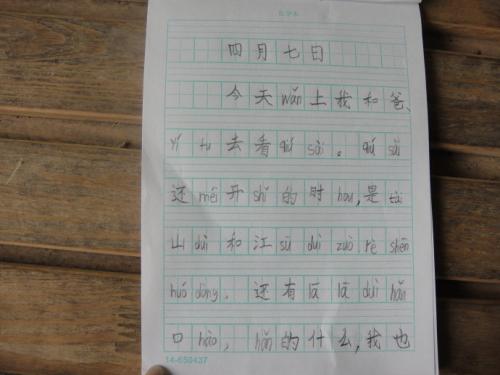 四月七日
今天wǎn上我和爸、
yí tu去看qiú sài。qiú sài
还méi开shǐ的时hou,是tài
山duì和江sū duì zuò rè shēn
huó dòng。还有lā lā duì hǎn
口hào,hǎn的什么,我也
14-650437